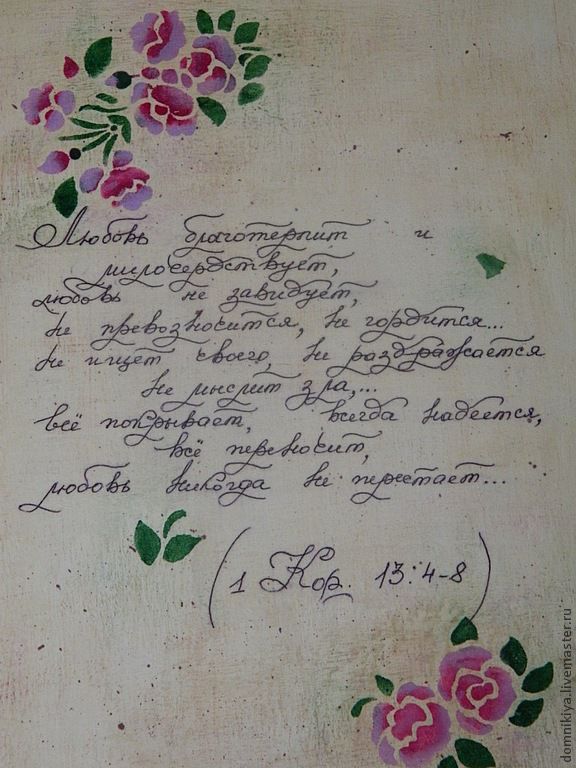 Любовь благотерпит и
милосердствует,
любовь не завидует,
не превозносится, не гордится...
не ищет своего, не раздражается
не мыслит зла,...
всё покрывает, всегда надеется,
всё переносит,
любовь никогда не перестает...
(1 Кор. 13:4-8)
domnikiya.livemaster.ru